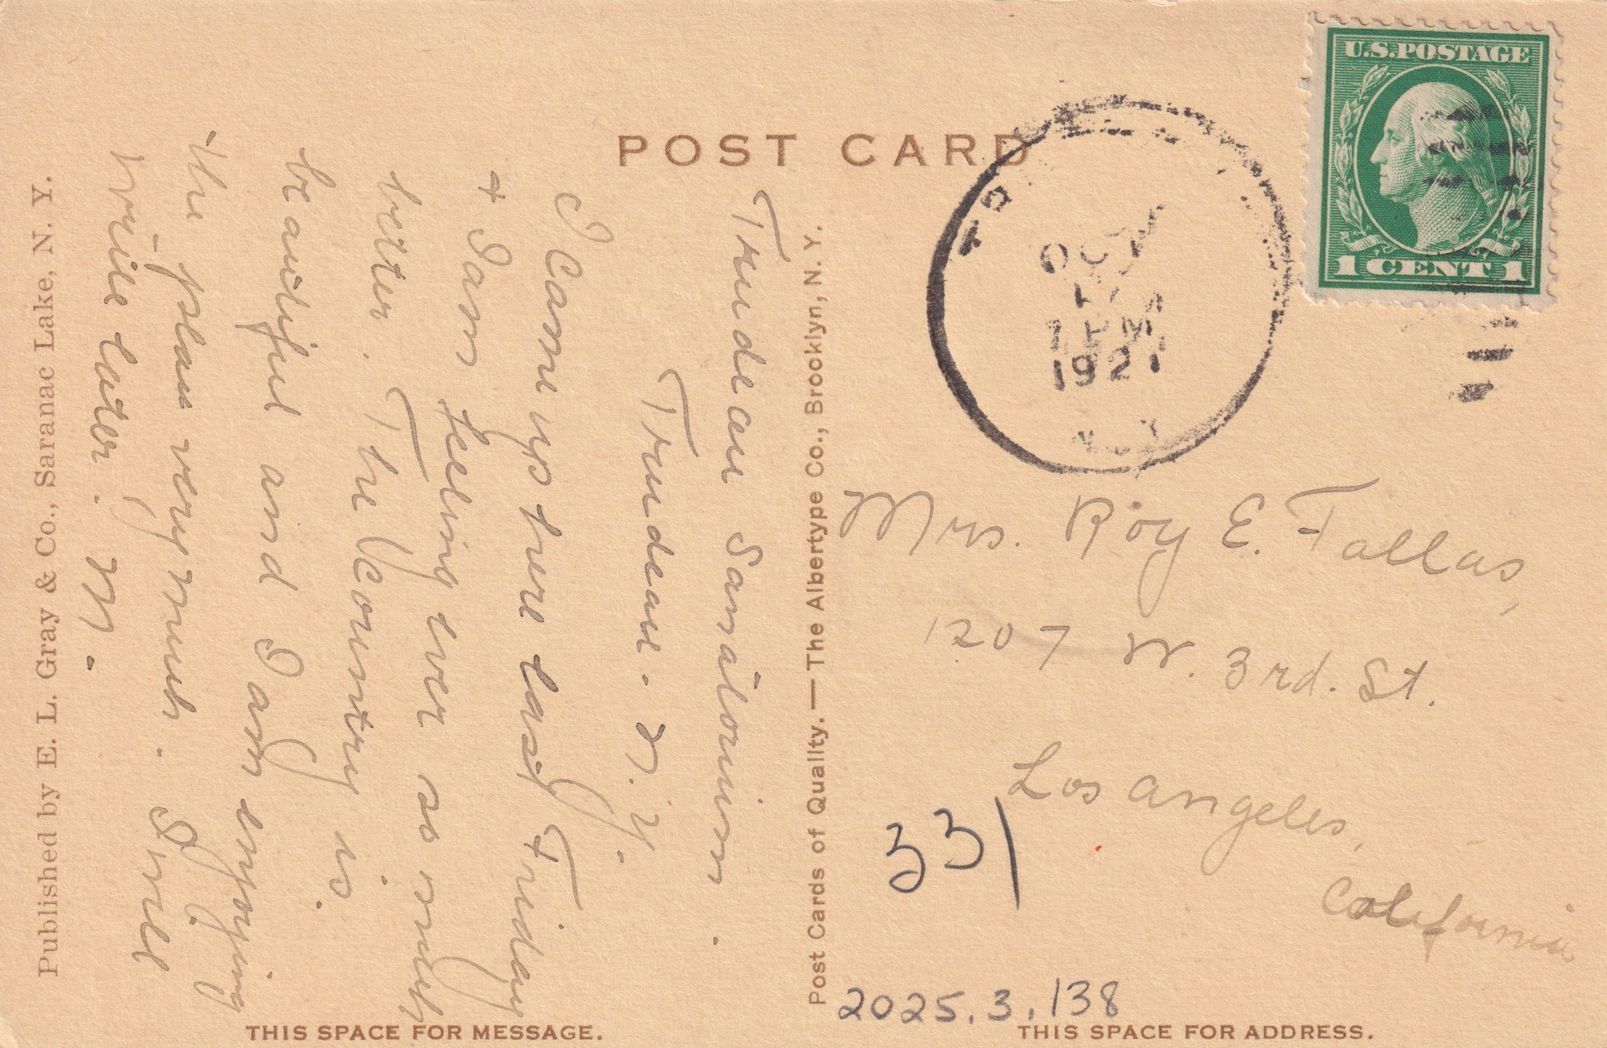 POST CARD
U.S. POSTAGE
1 CENT 1
OCT
PM
1921
N.Y.
Trudeau Sanatorium.
Trudeau. N.Y.
I came up here last Friday
+ I am feeling ever so much
better. The country is
beautiful and I am enjoying
the place very much. I will
write later. M.
Published by E. L. Gray & Co., Saranac Lake, N. Y.
THIS SPACE FOR MESSAGE.
Post Cards of Quality. — The Albertype Co., Brooklyn, N. Y.
Mrs. Roy E. Fallas,
1207 W. 3rd. St.
Los Angeles,
California
331
2025.3.138
THIS SPACE FOR ADDRESS.